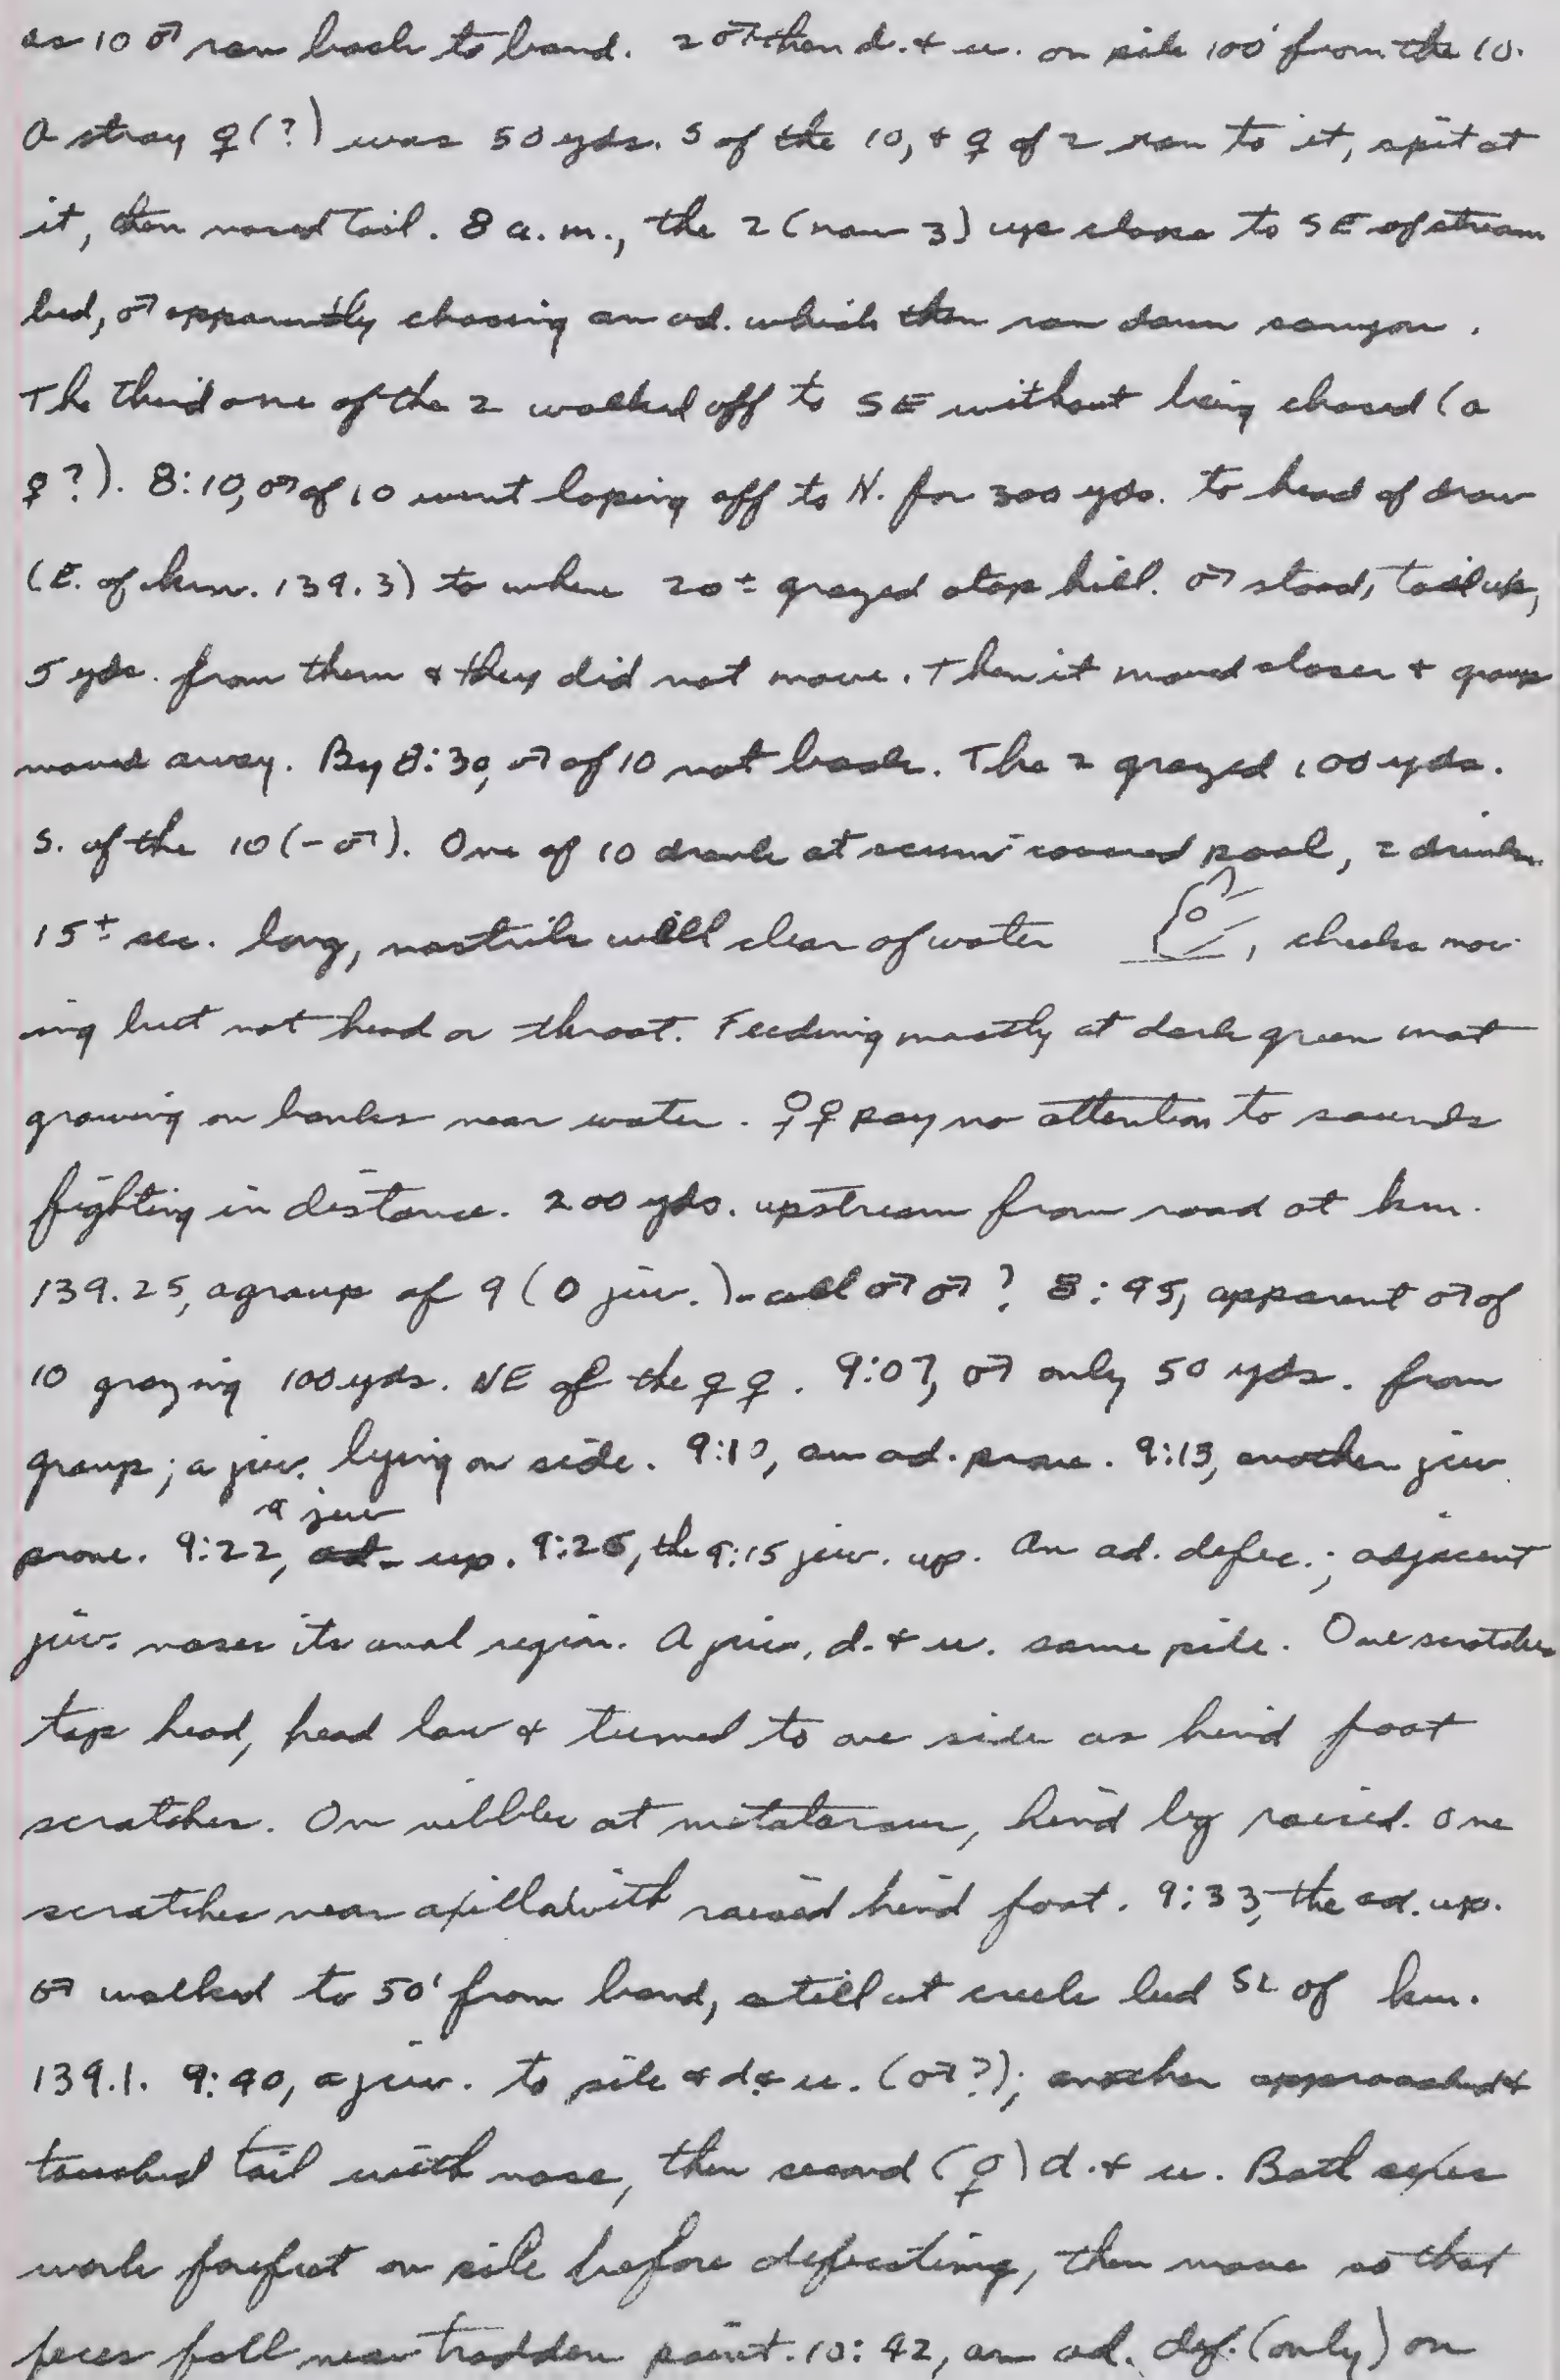 as 10 ♂ ran back to band. 2 ♂ then d. + u. on pile 100' from the 10.
A stray ♀(?) was 50 yds. S of the 10, + ♀ of 2 ran to it, spit at
it, then nosed tail. 8 a.m., the 2 (now 3) up close to SE of stream
bed, ♂ apparently chasing an ad. which then ran down canyon.
The third one of the 2 walked off to SE without being chased (a
♀?). 8:10, ♂ of 10 went loping off to N. for 300 yds. to head of draw
(E. of km. 139.3) to where 20± grazed atop hill. ♂ stood, tail up,
5 yds. from them + they did not move. Then it moved closer + group
moved away. By 8:30, ♂ of 10 not back. The 2 grazed 100 yds.
S. of the 10 (-♂). One of 10 drank at scum covered pool, 2 drinks
15± sec. long, nostrils well clear of water , cheeks mov-
ing but not head or throat. Feeding mostly at dark green mat
growing on banks near water. ♀♀ pay no attention to sounds
fighting in distance. 200 yds. upstream from road at km.
139.25, a group of 9 (0 juv.) - all ♂♂? 8:45, apparent ♂ of
10 grazing 100 yds. NE of the ♀♀. 9:07, ♂ only 50 yds. from
group; a juv. lying on side. 9:10, an ad. prone. 9:15, another juv.
prone. 9:22, a juv up. 9:26, the 9:15 juv. up. An ad. defec.; adjacent
juv. noses its anal region. A juv. d. + u. same pile. One scratches
top head, head low + turned to one side as hind foot
scratches. One nibbles at metatarsus, hind leg raised. One
scratches near axilla with raised hind foot. 9:33, the ad. up.
♂ walked to 50' from band, still at creek bed SE of km.
139.1. 9:40, a juv. to pile + d + u. (♂?); another approached +
touched tail with nose, then second (♀) d. + u. Both sexes
work forefeet on pile before defecating, then move so that
feces fall near trodden point. 10:42, an ad. def. (only) on